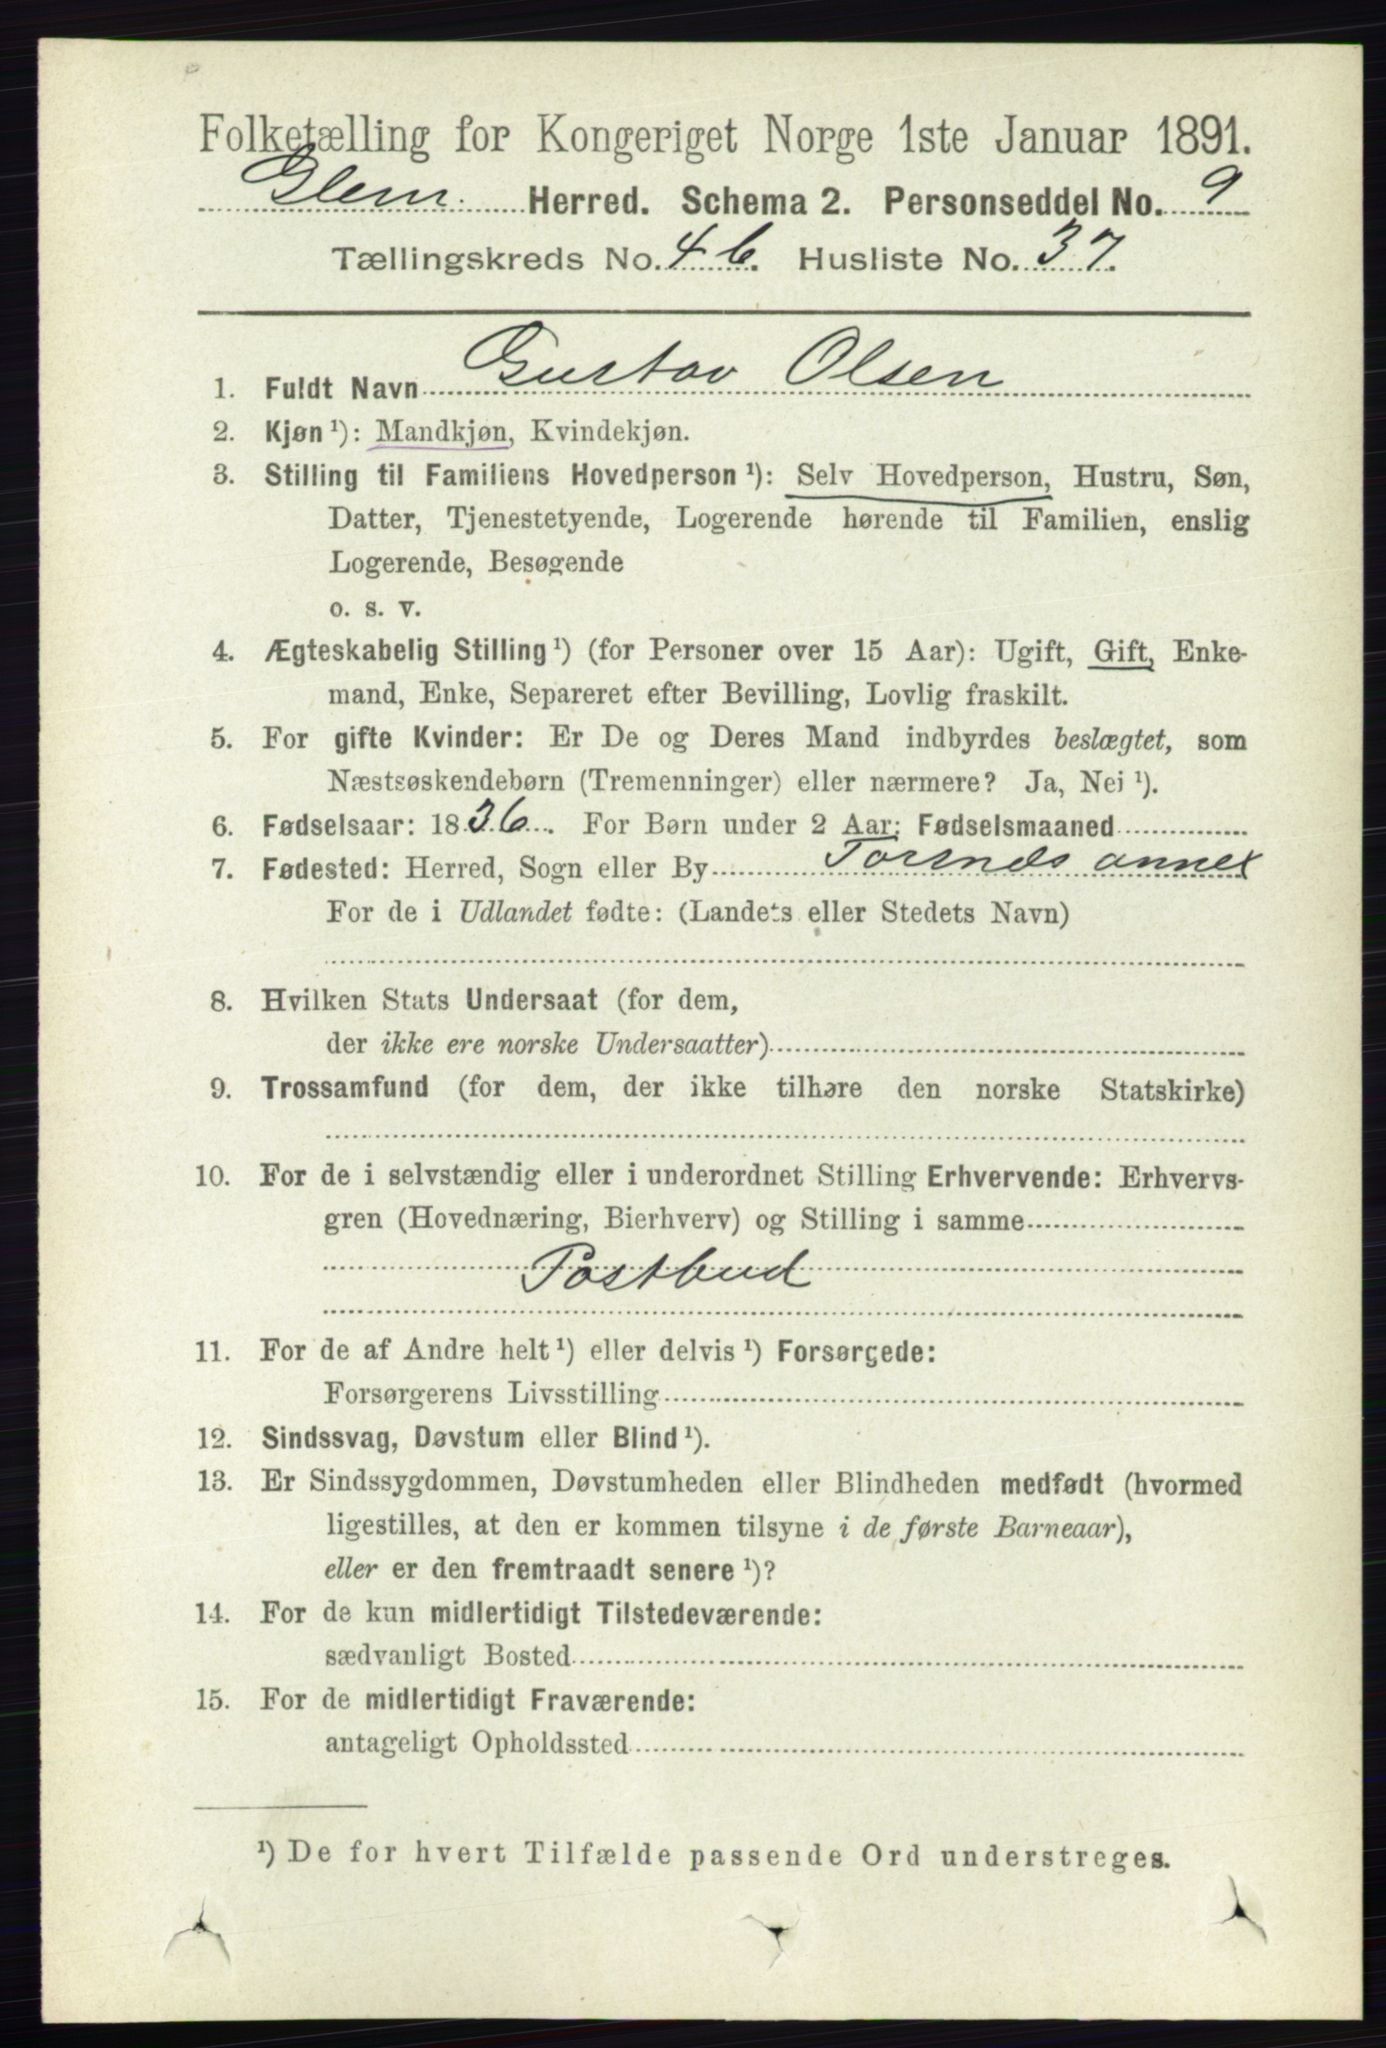 Folketælling for Kongeriget Norge 1ste Januar 1891.
Glem Herred. Schema 2. Personseddel No. 9
Tællingskreds No. 4 b. Husliste No. 37.
1. Fuldt Navn Gustav Olsen
2. Kjøn ¹): Mandkjøn, Kvindekjøn.
3. Stilling til Familiens Hovedperson ¹): Selv Hovedperson, Hustru, Søn,
Datter, Tjenestetyende, Logerende hørende til Familien, enslig
Logerende, Besøgende
o. s. v.
4. Ægteskabelig Stilling ¹) (for Personer over 15 Aar): Ugift, Gift, Enke-
mand, Enke, Separeret efter Bevilling, Lovlig fraskilt.
5. For gifte Kvinder: Er De og Deres Mand indbyrdes beslægtet, som
Næstsøskendebørn (Tremenninger) eller nærmere? Ja, Nei ¹).
6. Fødselsaar: 1836. For Børn under 2 Aar: Fødselsmaaned
7. Fødested: Herred, Sogn eller By Torsnes annex
For de i Udlandet fødte: (Landets eller Stedets Navn)
8. Hvilken Stats Undersaat (for dem,
der ikke ere norske Undersaatter)
9. Trossamfund (for dem, der ikke tilhøre den norske Statskirke)
10. For de i selvstændig eller i underordnet Stilling Erhvervende: Erhvervs-
gren (Hovednæring, Bierhverv) og Stilling i samme
Postbud
11. For de af Andre helt ¹) eller delvis ¹) Forsørgede:
Forsørgerens Livsstilling
12. Sindssvag, Døvstum eller Blind ¹).
13. Er Sindssygdommen, Døvstumheden eller Blindheden medfødt (hvormed
ligestilles, at den er kommen tilsyne i de første Barneaar),
eller er den fremtraadt senere ¹)?
14. For de kun midlertidigt Tilstedeværende:
sædvanligt Bosted
15. For de midlertidigt Fraværende:
antageligt Opholdssted
¹) De for hvert Tilfælde passende Ord understreges.